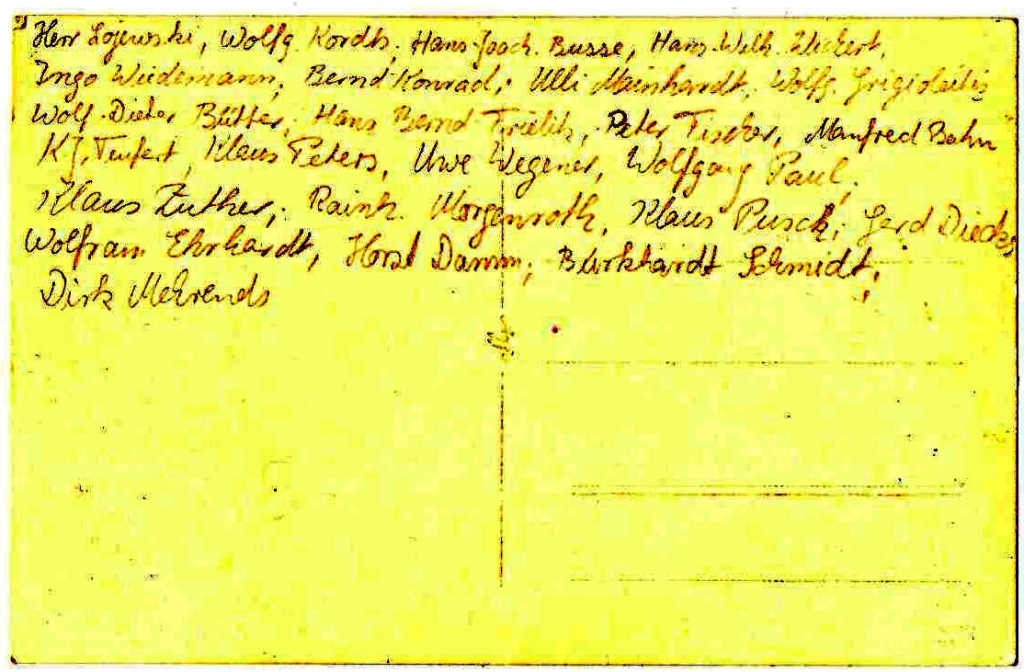 Herr Lojewski, Wolfg. Kordts, Hans-Joach. Busse, Hans-Wilh. Wickert,
Ingo Wiedemann, Bernd Konrad, Ulli Meinhardt, Wolfg. Grigoleitis
Wolf-Dieter Bütter, Hans Bernd Peter Fischer, Manfred Bohn
K.J. Teufert, Klaus Peters, Uwe Wegener, Wolfgang Paul,
Klaus Zuther, Rainh. Morgenroth, Klaus Pusch, Gerd
Wolfram Ehrhardt, Horst Damm, Burkhardt Schmidt,
Dirk Mehrends